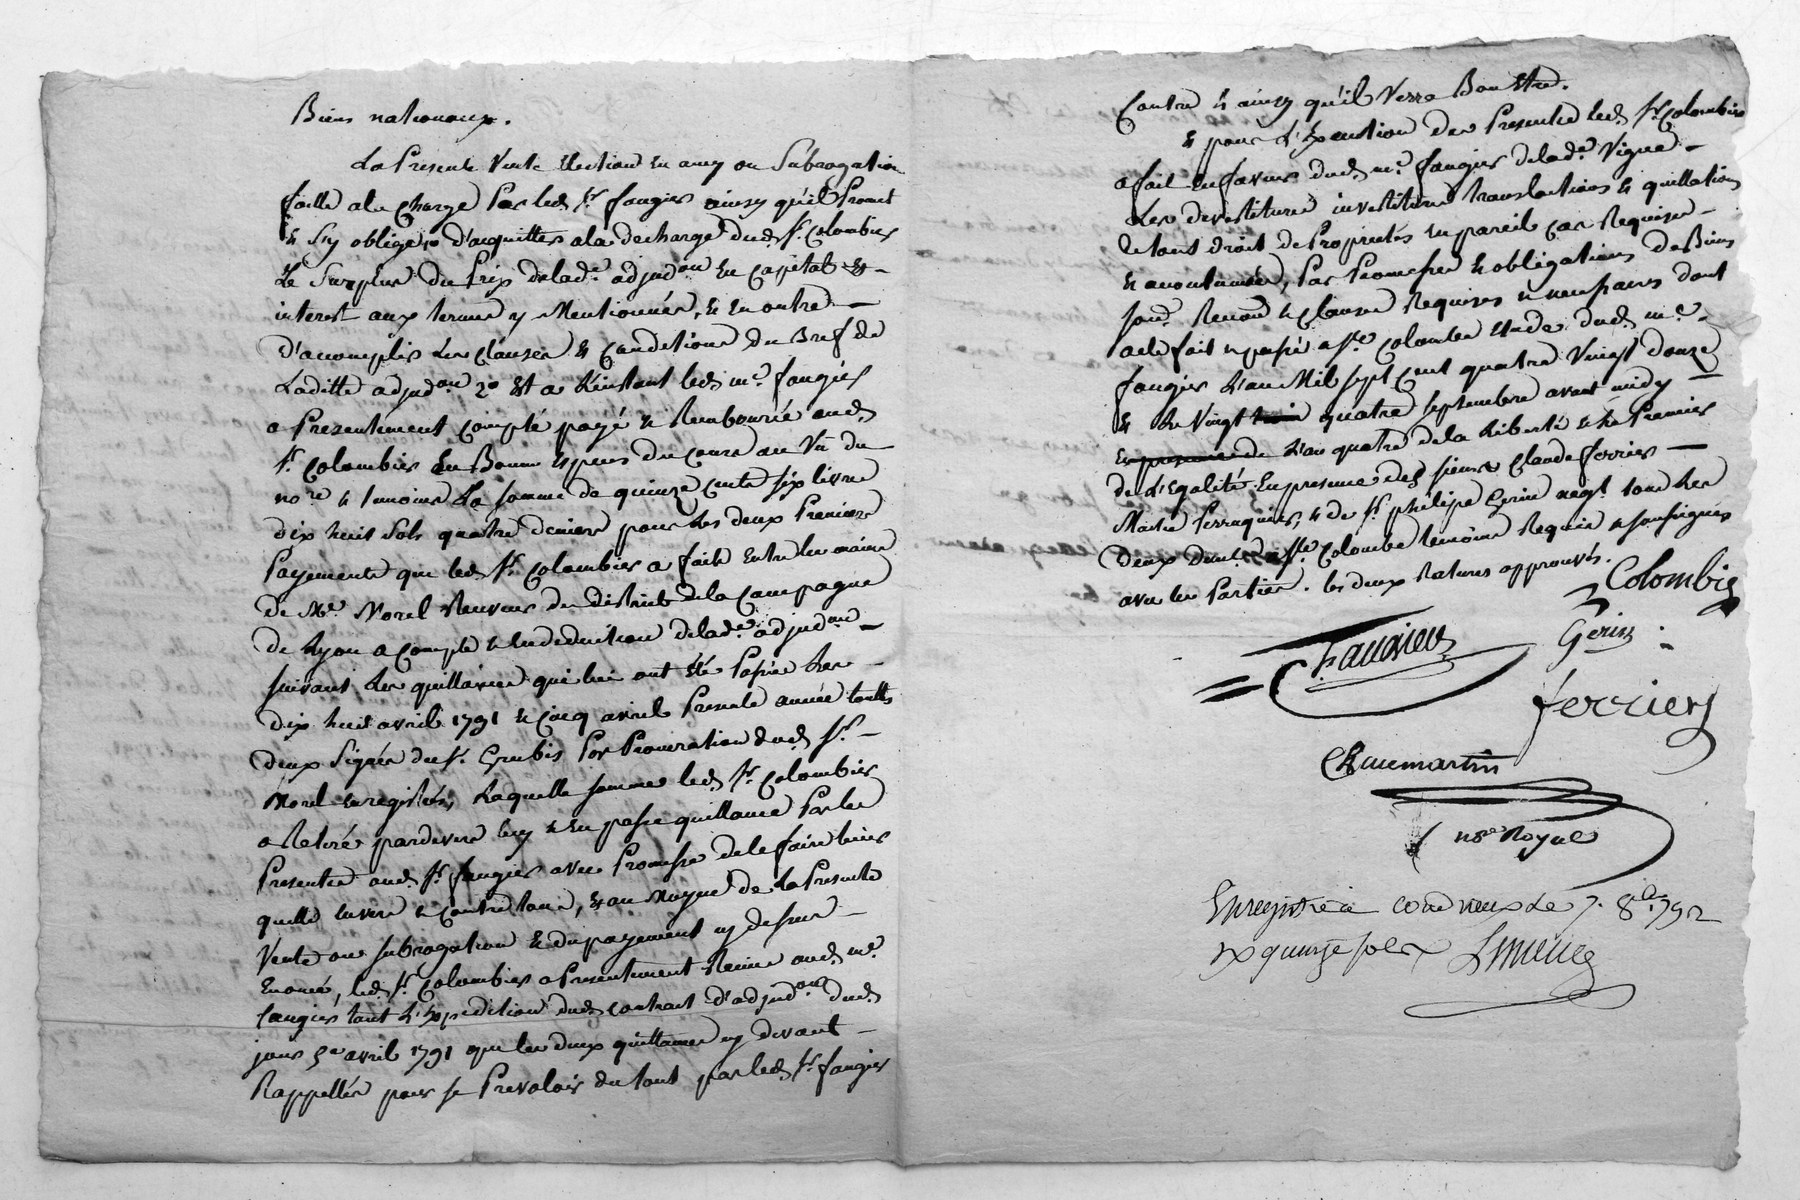 Biens nationaux.
La Presente Vente Election en amy ou Subrogation
faitte a la Charge Par led. Sr. faugier ainsy qu'il Promet
& s'y oblige d'acquitter a la decharge dud. Sr. Colombier
Le Surplus du Prix de lade. adjudon En Capital &
interest aux termes y Mentionnés, & en outre
D'accomplir Les Clauses & Conditions du Bref de
Laditte adjudon 2o Et a L'instant led. me. faugier
a Presentement Compté payé & Remboursé aud.
Sr. Colombier En Bonnes Especes du Cours au Vû du
nore & temoins La somme de quinze Cents six livres
dix huit Sols quatre deniers pour Les deux Premiers
Payements que led. Sr. Colombier a fait Entre les mains
De Mr. Morel Receveur du district de la Campagne
de Lyon a Compte & en deduction de lade. adjudon
suivant Les quittances qui lui ont été Passées Les
dix huit avril 1791 & Cinq avril Presente année toutes
deux Signées du Sr. Grubis Par Procuration dud. Sr.
Morel Enregistrées, Laquelle somme led. Sr. Colombier
a Retiré pardevers luy & En passe quittance Par les
Presentes aud. Sr. faugier avec Promesse de le faire tenir
quitte envers & Contre tous, & au Moyen de La Presente
Vente ou subrogation & du payement cy dessus
Enoncé, led. Sr. Colombier a Presentement Remis aud. me.
faugier tant L'Expedition dud. contrat d'adjudon dud.
jour 5e avril 1791 que les deux quittances cy devant
Rappellés pour se Prevaloir du tout par led. Sr. faugier
Contre & ainsy qu'il Verra Bon Etre.
& pour L'Execution des Presentes led. Sr. Colombier
a fait En faveur dud. me. faugier de lade. Vigne
Les devestitures investitures translations & quittations
de tous droit de Proprietés En pareil Cas Requises
& accoutumées, Par Promesses & obligations de Biens
soud. Renond. & Clauses Requises & necessaires dont
acte fait & passé a Ste. Colombe Etude dud. me.
faugier L'an Mil sept Cent quatre Vingt douze
& Le Vingt trois quatre septembre avant midy
en presence de L'an quatre de la Liberté & Le Premier
de L'Egalité, En presence des sieurs Claude ferrier
Maitre Perruquier, & de Sr. philipe Gerin negt. tous Les
deux demts. a Ste. Colombe temoins Requis & soussignés
avec les Parties. les deux Ratures approuvés.
Colombier
Faugier
Gerin
ferrier
Chaumartin
nore Royal
Enregistré à Condrieux Le 7. 8bre. 1792